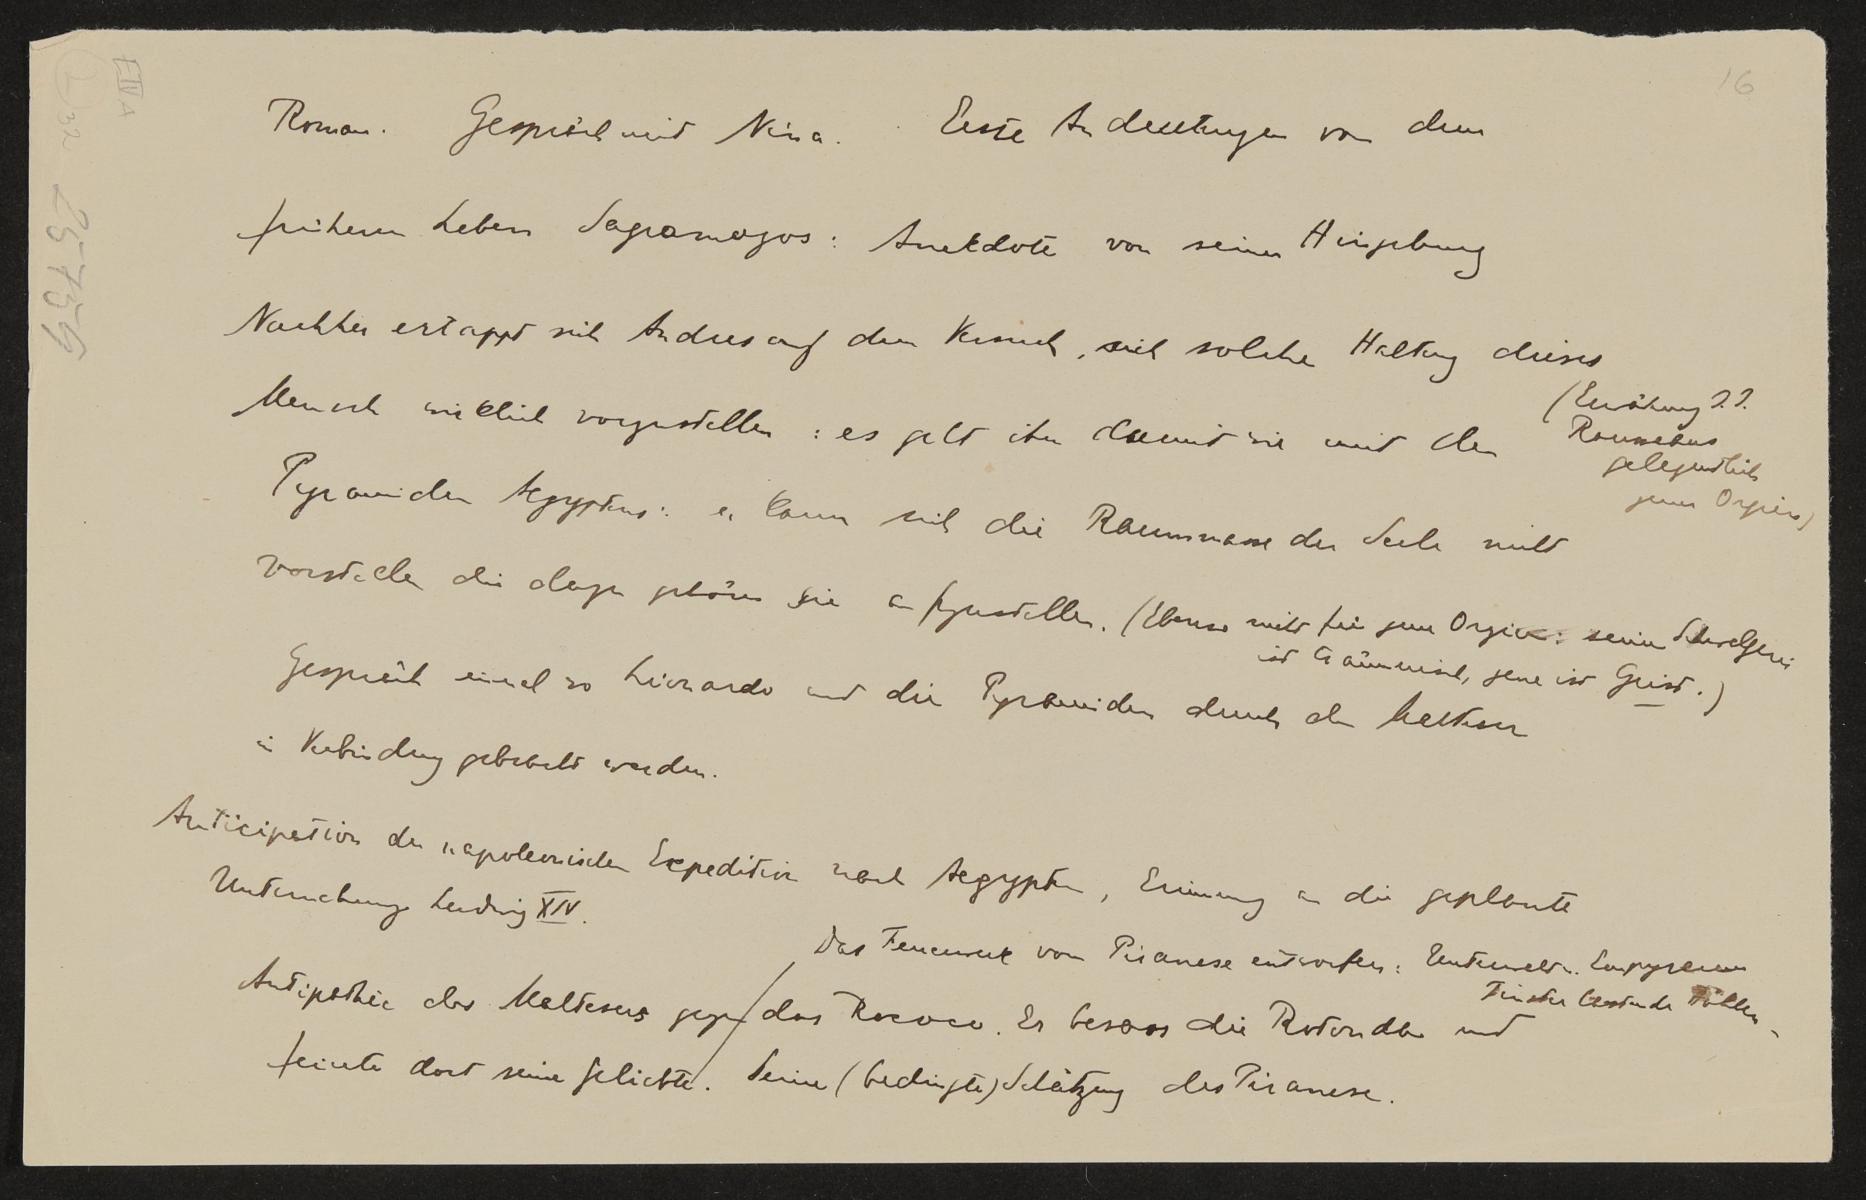 16
E IV A
232
25759
Roman. Gespräch mit Nina. Erste Andeutungen von dem
frühern Leben Sagramozos: Anekdote von seiner Hingebung
Nachher ertappt sich Andres auf dem Versuch, sich solche Haltung dieses
Mensch wirklich vorzustellen: es geht ihm damit wie mit den
(Erwähnung J. J.
Rousseaus
gelegentlich
jener Orgien)
Pyramiden Aegyptens: er kann sich die Raummasse der Seele nicht
vorstellen die dazu gehören sie aufzustellen. (Ebenso nicht für jene Orgien: seine Schwelgerei
ist träumerisch, jene ist Geist.)
Gespräch einmal wo Lionardo und die Pyramiden durch den Malteser
in Verbindung gebracht werden.
Anticipation der napoleonischen Expedition nach Aegypten, Erinnerung an die geplante
Unternehmung Ludwig XIV.
Das Feuerwerk vom Piranese entworfen: Unterwelt. Empyreum
Finster Höhlen
Antipathie des Maltesers gegen / das Rococo. Er besass die Rotonda und
feierte dort seine Geliebte. Seine (bedingte) Schätzung des Piranese.